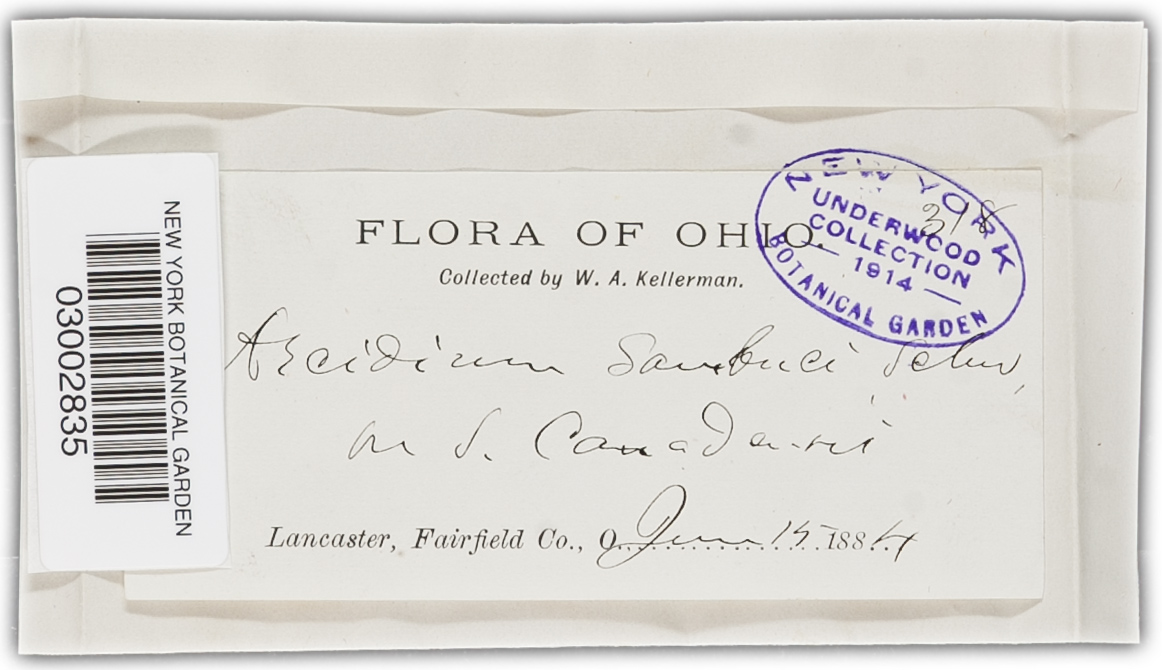 NEW YORK
UNDERWOOD
COLLECTION
1914
BOTANICAL GARDEN
318
FLORA OF OHIO.
Collected by W. A. Kellerman.
Aecidium Sambuci Schw,
on S. Canadensis
Lancaster, Fairfield Co., O. June 15 1884
NEW YORK BOTANICAL GARDEN
03002835